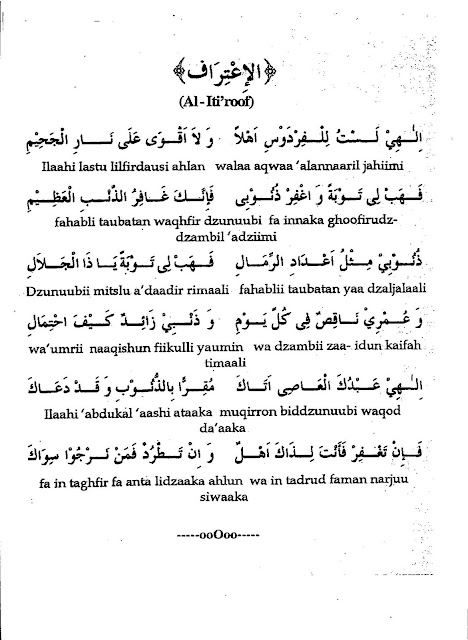 ﴿الإِعْتِرَاف﴾
(Al-Iti'roof)
اِلٰهِيْ لَسْتُ لِلْفِرْدَوْسِ اَهْلاً وَ لاَ اَقْوَى عَلَى نَــارِ الْجَحِيْمِ
Ilaahi lastu lilfirdausi ahlan walaa aqwaa 'alannaaril jahiimi
فَـهَبْ لِى تَـوْبَةً وَ اغْفِرْ ذُنُوْبِى فَاِنَّـكَ غَافِرُ الذَّنْبِ الْعَظِيْمِ
fahabli taubatan waqhfir dzunuubi fa innaka ghoofirudz-
dzambil 'adziimi
ذُنُوْبِيْ مِثْلُ اَعْدَادِ الرِّمَالِ فَـهَبْ لِى تَـوْبَةً يَــا ذَا الْجَـلاَلِ
Dzunuubii mitslu a'daadir rimaali fahablii taubatan yaa dzaljalaali
وَ عُمْرِيْ نَـاقِصٌ فِى كُلِّ يَـوْمٍ وَ ذَنْبِـيْ زَائِـدٌ كَـيْفَ احْتِمَالِ
wa'umrii naaqishun fiikulli yaumin wa dzambii zaa- idun kaifah
timaali
اِلٰهِيْ عَبْدُكَ الْعَـاصِى اَتَـاكَ مُقِـرًّا بِالذُّنُـوْبِ وَ قَدْ دَعَـاكَ
Ilaahi 'abdukal 'aashi ataaka muqirron biddzunuubi waqod
da'aaka
فَـاِنْ تَغْفِرْ فَأَنْتَ لِـذَاكَ اَهْـلٌ وَ اِنْ تَـطْرُدْ فَمَنْ نَـرْجُوْا سِوَاكَ
fa in taghfir fa anta lidzaaka ahlun wa in tadrud faman narjuu
siwaaka
-----ooOoo-----